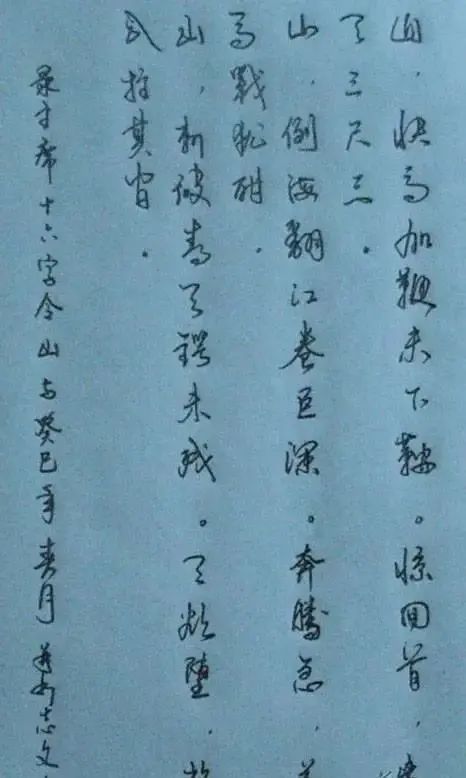 山，快马加鞭未下鞍。惊回首，
天三尺三。
山，倒海翻江卷巨澜。奔腾急，
马戰犹酣。
山，刺破青天锷未残。天欲堕，
以拄其间。
录主席十六字令山与癸巳年春月志文